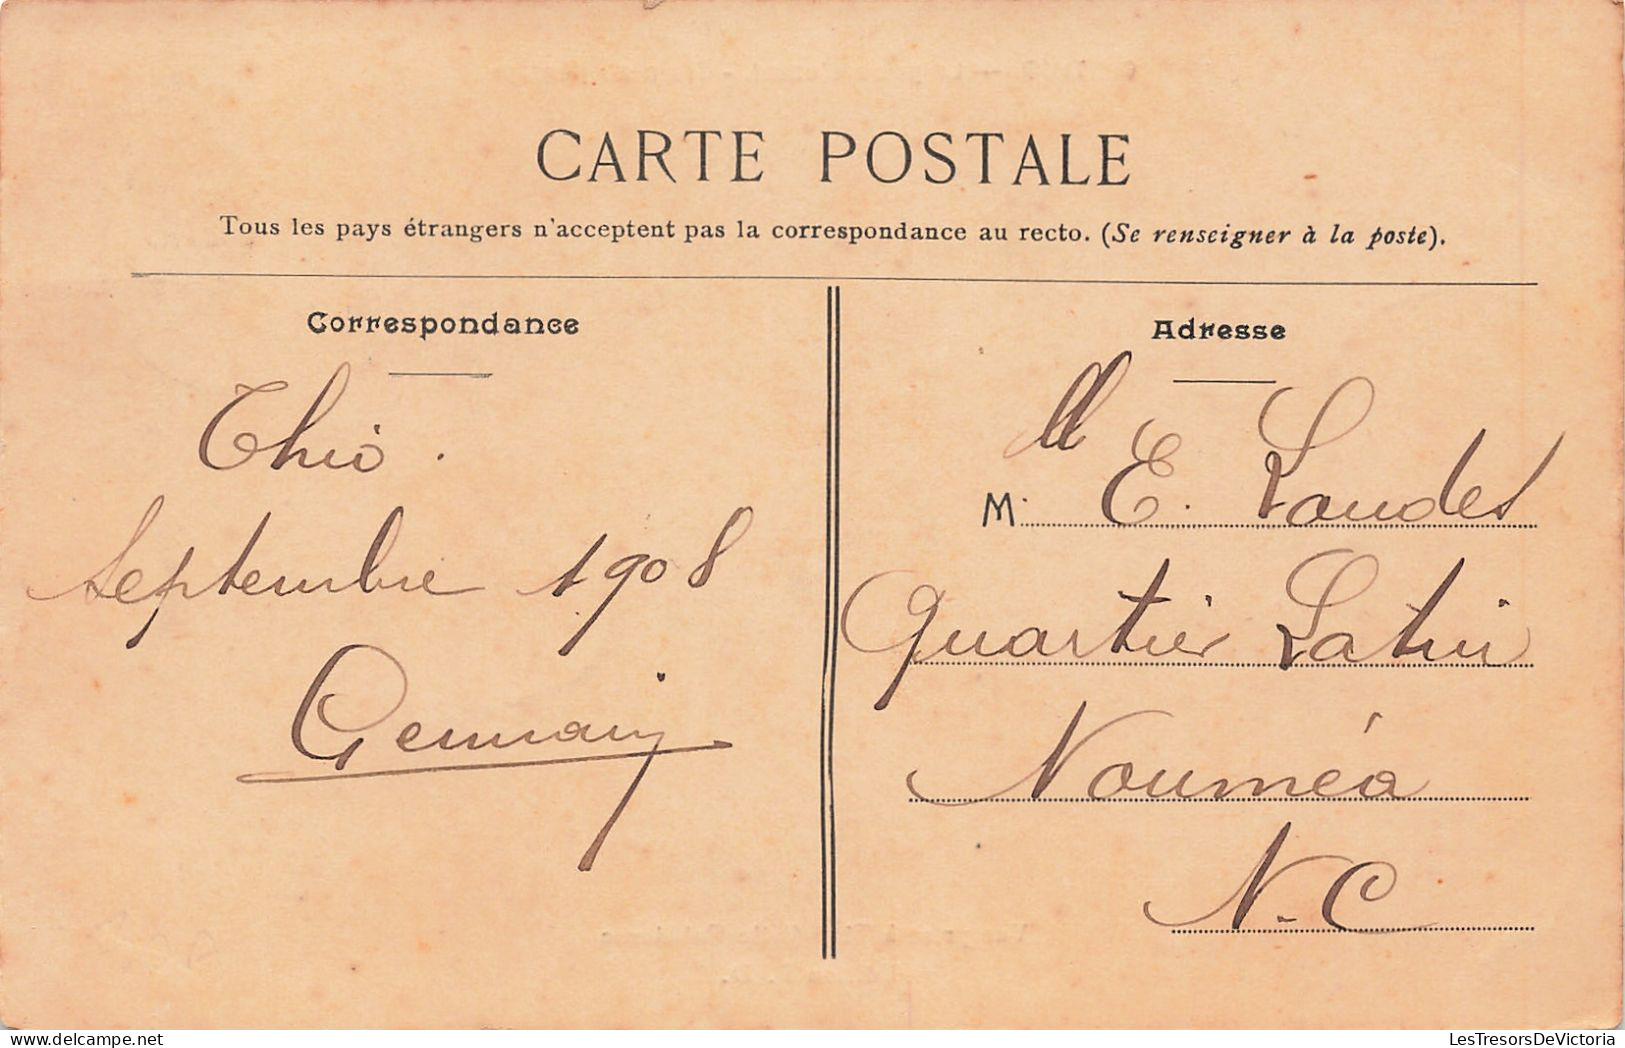 CARTE POSTALE
Tous les pays étrangers n'acceptent pas la correspondance au recto. (Se renseigner à la poste).
Correspondance
Thio.
Septembre 1908
Germain
Adresse
M. E. Landes
Quartier Latin
Nouméa
N.-C
LesTresorsDeVictoria